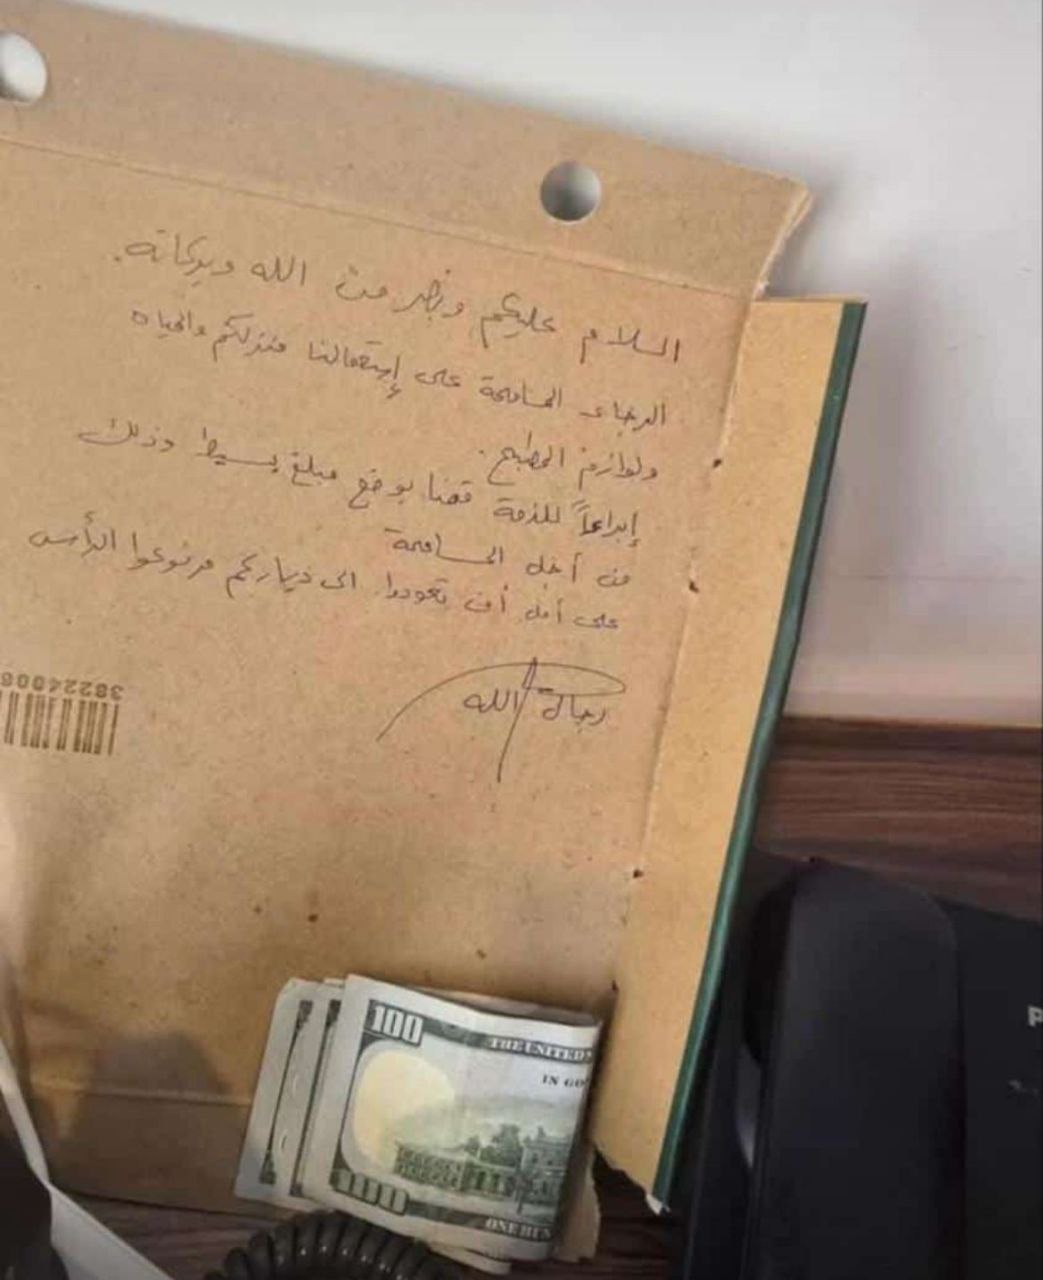 السلام عليكم ونصر من الله وبركاته.
الرجاء المسامحة على إستعمالنا منزلكم والمياه
ولوازم المطبخ.
إبراءاً للذمة قمنا بوضع مبلغ بسيط وذلك
من أجل المسامحة
على أمل أن تعودوا الى دياركم مرفوعوا الرأس
رجال الله
38224
100
THE UNITED
IN GO
100
ONE HUN
P